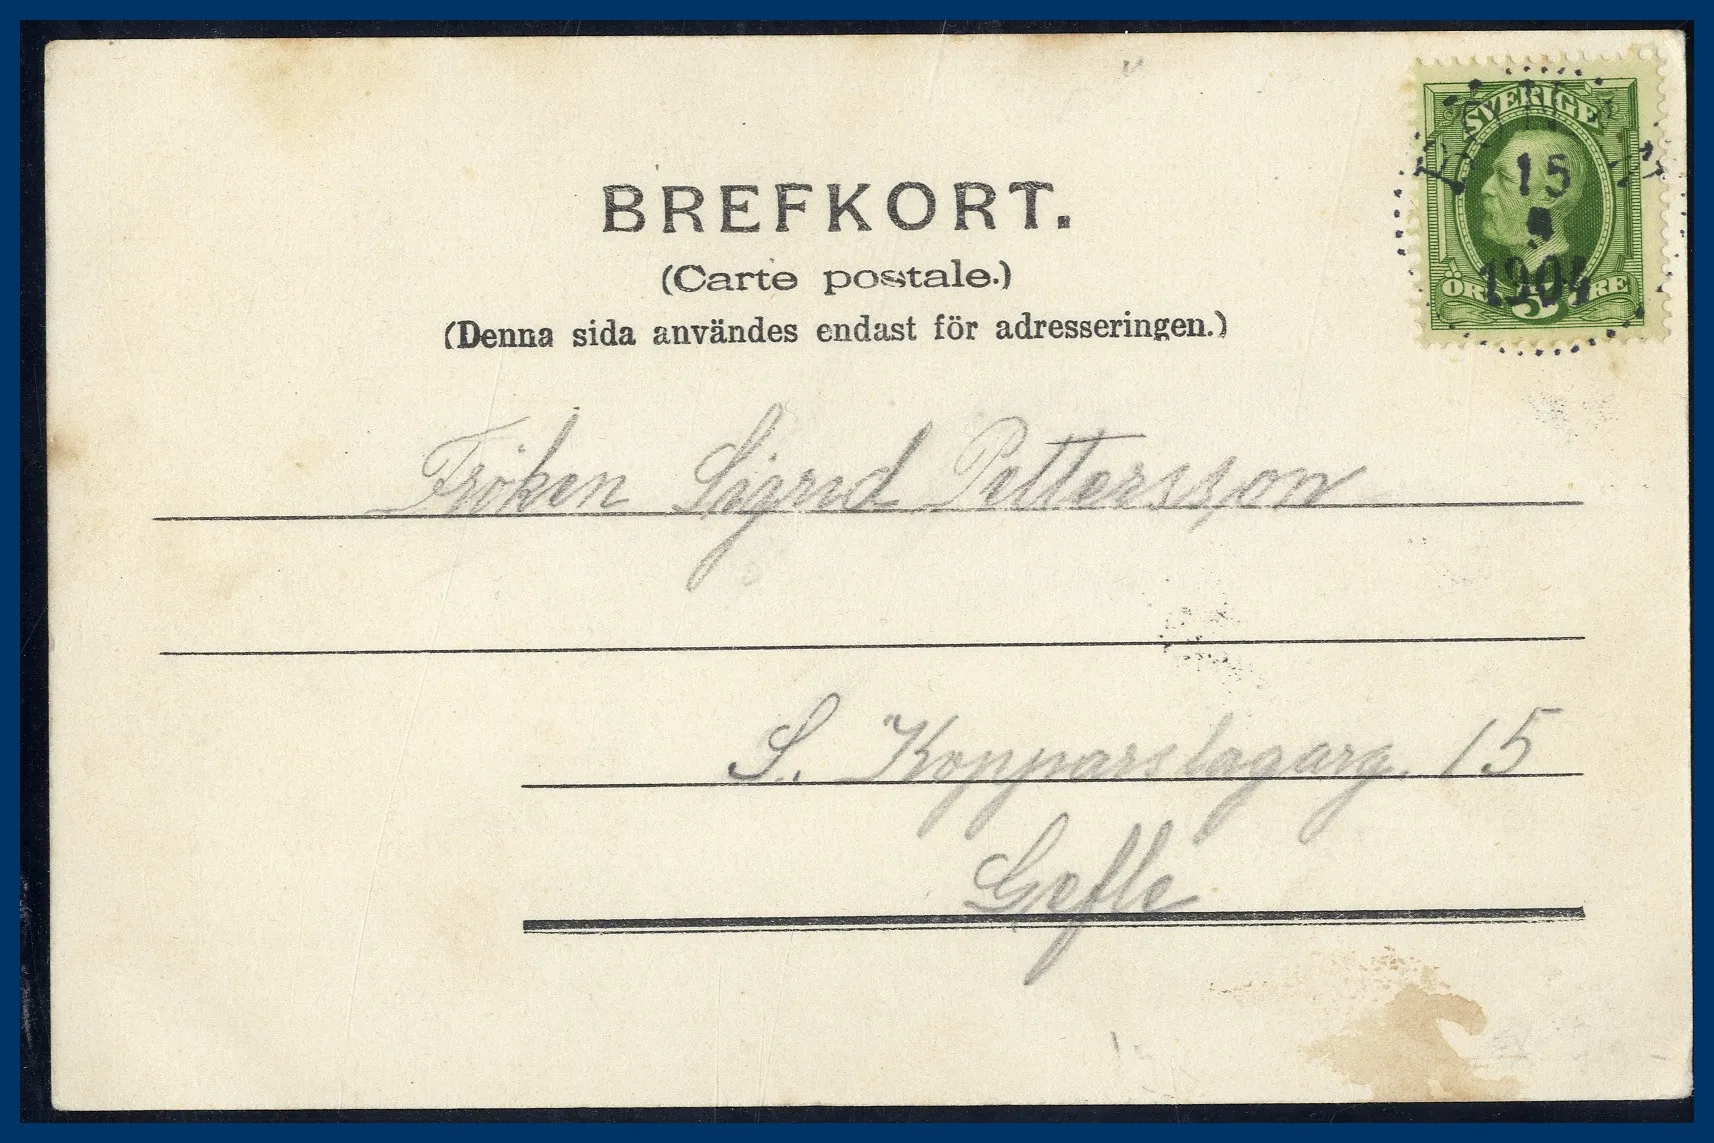 BREFKORT.
(Carte postale.)
(Denna sida användes endast för adresseringen.)
SVERIGE
15
1904
ÖRE 5 ÖRE
Fröken Sigrid Pettersson
S. Kopparslagarg. 15
Gefle